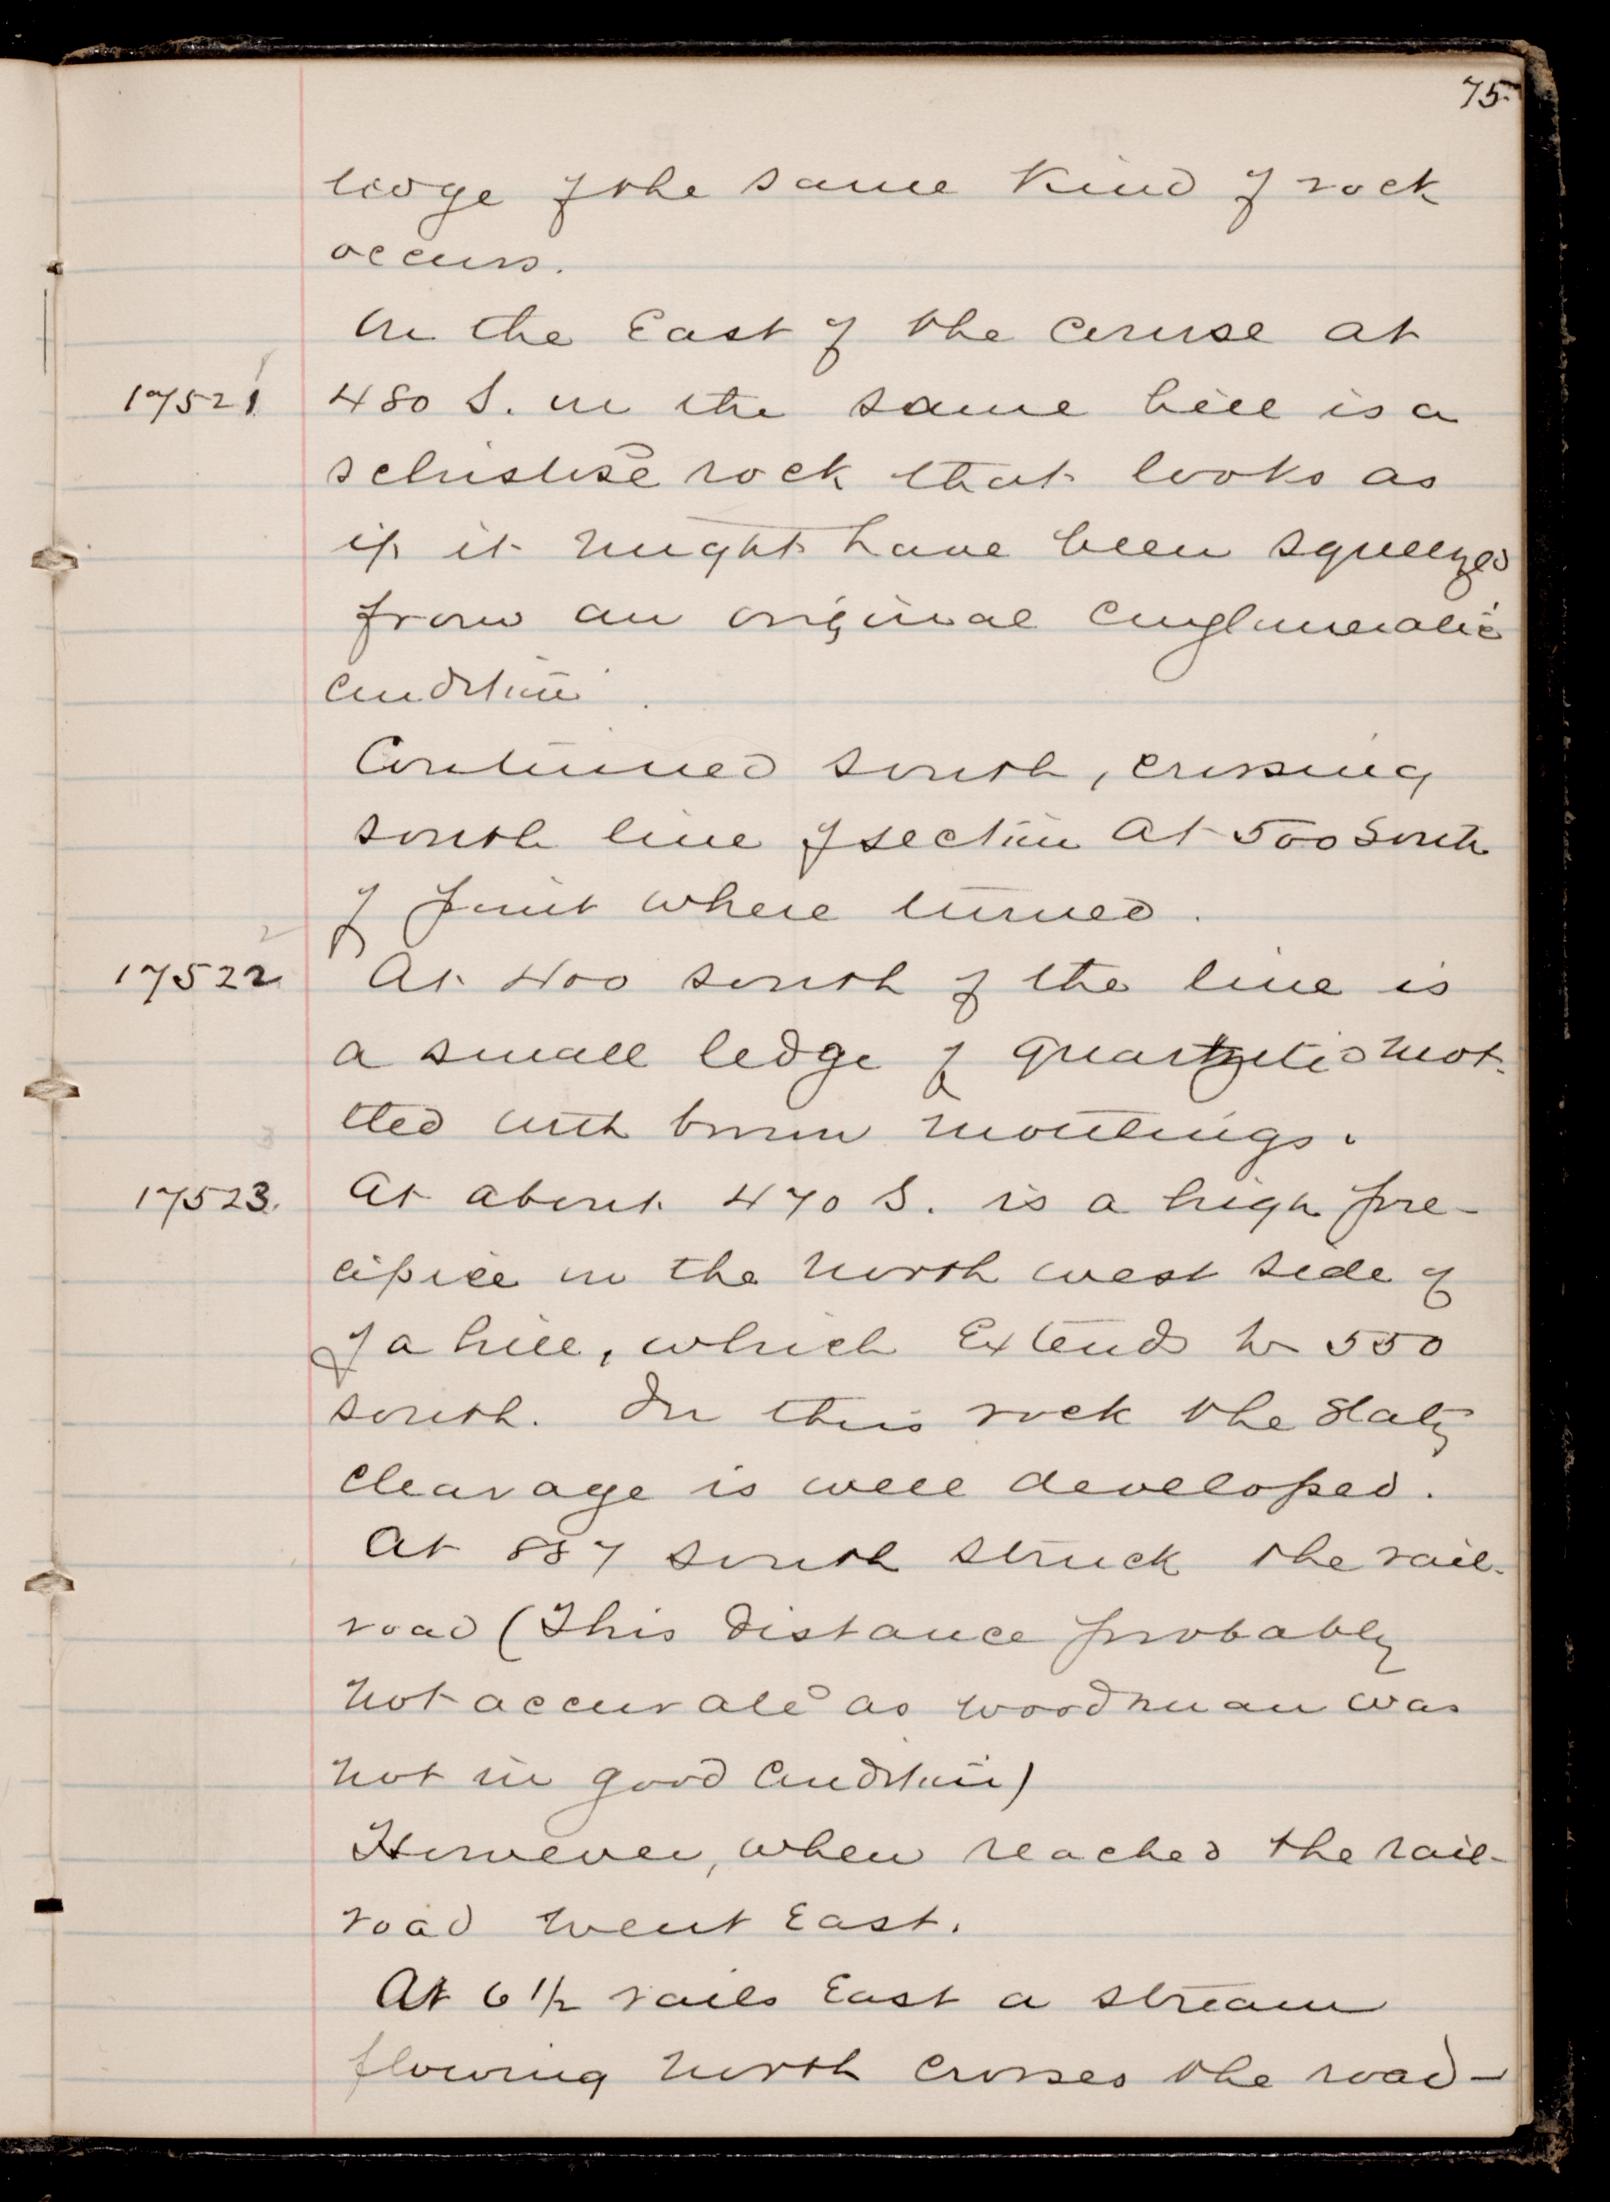 75.
ledge of the same kind of rock
occurs.
On the East of the course at
17521 480 S. on the same hill is a
schistose rock that looks as
if it might have been squeezed
from an original conglomeratic
condition.
Continued south, crossing
south line of section at 500 South
of point where turned.
2
17522 At 400 south of the line is
a small ledge of quartzite mot-
tled with brown mottlings.
3
17523. At about 470 S. is a high pre-
cipice on the north west side of
of a hill, which Extends to 550
south. In this rock the slaty
cleavage is well developed.
At 887 south struck the rail-
road (This distance probably
not accurate as woodman was
not in good condition)
However, when reached the rail-
road went East.
At 6 1/2 rails East a stream
flowing north crosses the road-